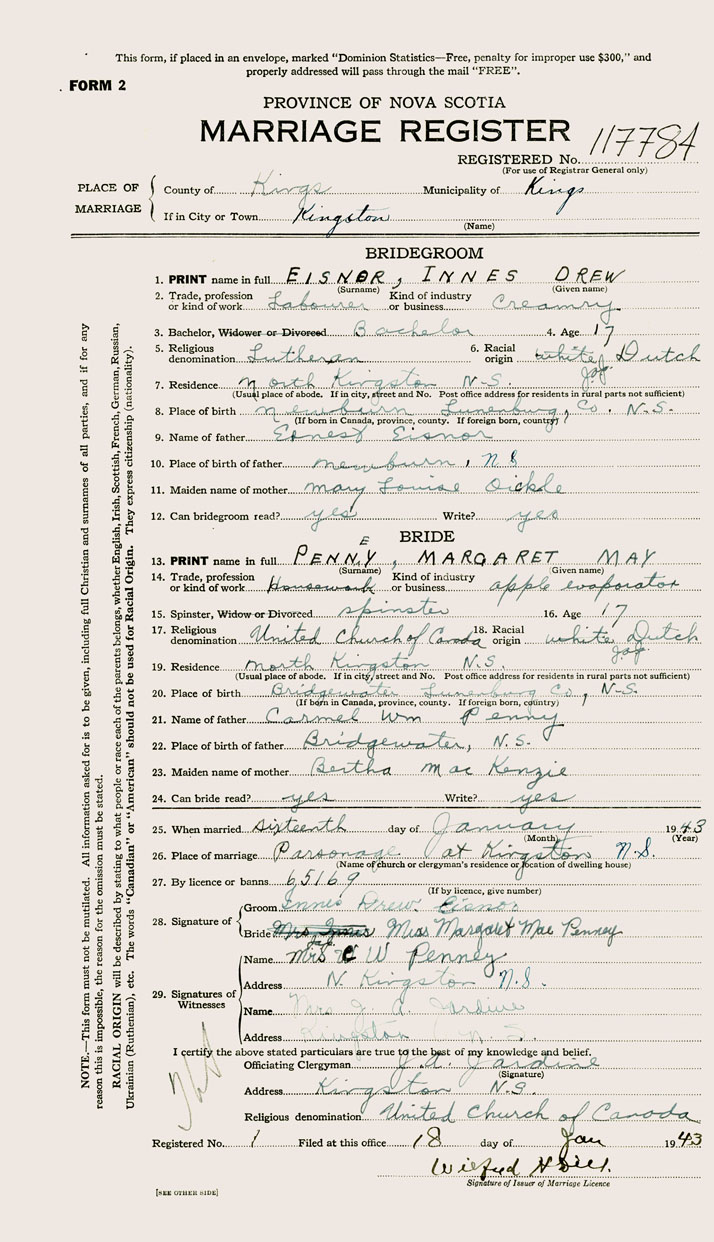 This form, if placed in an envelope, marked "Dominion Statistics—Free, penalty for improper use $300," and
properly addressed will pass through the mail "FREE".
FORM 2
PROVINCE OF NOVA SCOTIA
MARRIAGE REGISTER
REGISTERED No. 117784
(For use of Registrar General only)
PLACE OF MARRIAGE
County of Kings Municipality of Kings
If in City or Town Kingston
(Name)
BRIDEGROOM
1. PRINT name in full EISNOR, INNES DREW
(Surname) (Given name)
2. Trade, profession or kind of work Labourer Kind of industry or business Creamry
3. Bachelor, Widower or Divorced Bachelor 4. Age 17
5. Religious denomination Lutheran 6. Racial origin white Dutch
J.a.J.
7. Residence North Kingston N.S.
(Usual place of abode. If in city, street and No. Post office address for residents in rural parts not sufficient)
8. Place of birth Newburn Lunenburg, Co. N.S.
(If born in Canada, province, county. If foreign born, country)
9. Name of father Ernest Eisnor
10. Place of birth of father Newburn, N.S
11. Maiden name of mother Mary Louise Oickle
12. Can bridegroom read? yes Write? yes
BRIDE
E
13. PRINT name in full PENNY, MARGARET MAY
(Surname) (Given name)
14. Trade, profession or kind of work Housework Kind of industry or business apple evaporator
15. Spinster, Widow or Divorced spinster 16. Age 17
17. Religious denomination United Church of Canada 18. Racial origin white Dutch
J.a.J.
19. Residence North Kingston N.S.
(Usual place of abode. If in city, street and No. Post office address for residents in rural parts not sufficient)
20. Place of birth Bridgewater Lunenburg Co, N-S.
(If born in Canada, province, county. If foreign born, country)
21. Name of father Carmel Wm Penny
22. Place of birth of father Bridgewater, N.S.
23. Maiden name of mother Bertha Mac Kenzie
24. Can bride read? yes Write? yes
25. When married sixteenth day of January 1943
(Month) (Year)
26. Place of marriage Parsonage at Kingston N.S.
(Name of church or clergyman's residence or location of dwelling house)
27. By licence or banns 65169
(If by licence, give number)
28. Signature of
Groom Innes Drew Eisnor
Bride Mrs Innes Miss Margaret Mae Penney
29. Signatures of Witnesses
Name Mrs C W Penney
Address N. Kingston N.S.
Name Mrs J. A. Jardine
Address Kingston N.S.
I certify the above stated particulars are true to the best of my knowledge and belief.
Officiating Clergyman J.A. Jardine
(Signature)
Address Kingston N.S.
Religious denomination United Church of Canada
Registered No. 1 Filed at this office 18 day of Jan 1943
Wilfred
Signature of Issuer of Marriage Licence
[SEE OTHER SIDE]
NOTE.—This form must not be mutilated. All information asked for is to be given, including full Christian and surnames of all parties, and if for any
reason this is impossible, the reason for the omission must be stated.
RACIAL ORIGIN will be described by stating to what people or race each of the parents belongs, whether English, Irish, Scottish, French, German, Russian,
Ukrainian (Ruthenian), etc. The words "Canadian" or "American" should not be used for Racial Origin. They express citizenship (nationality).